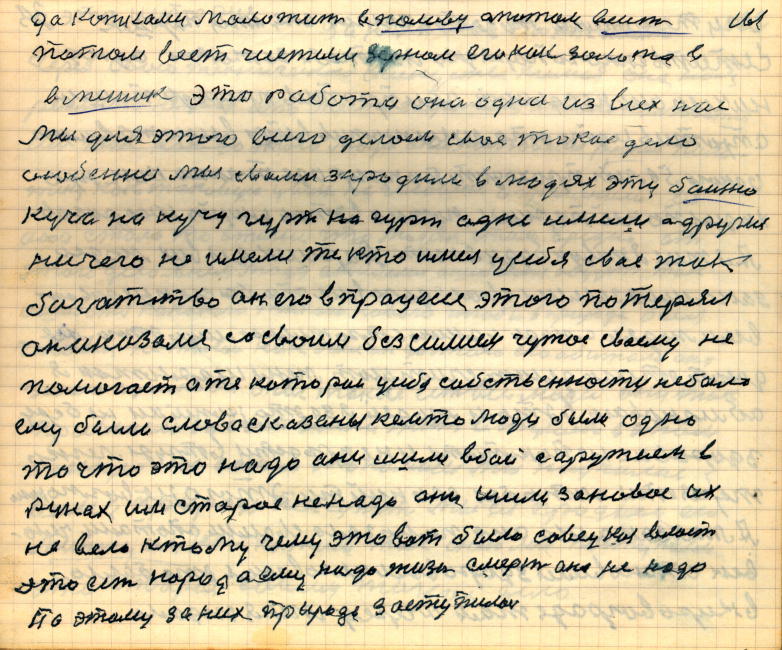 да копиками молотит в полову а потом веит
потом веет чистым зерном его как золота в
в мешок это работа она одна из всех нас
мы для этого всего делоем свое токое дело
особенно мы свами зародили в людях эту
куча на кучу гурт на гурт одне имели а другия
ничего не имели те кто имел усебя свае так
богатство он его в працесе этого потерял
сосвоим безсилием чужое своему не
помогает а те которои усебя собственности небыло
ему были слова сказаны кемто люди были одно
то что это надо ани шили вбой соружием в
руках им старое ненадо они шили зановое их
не вело ктому чему это вот было совецкоя власт
это ест народ а ему надо жизн смерт она не надо
По этому за них прырода заступилас